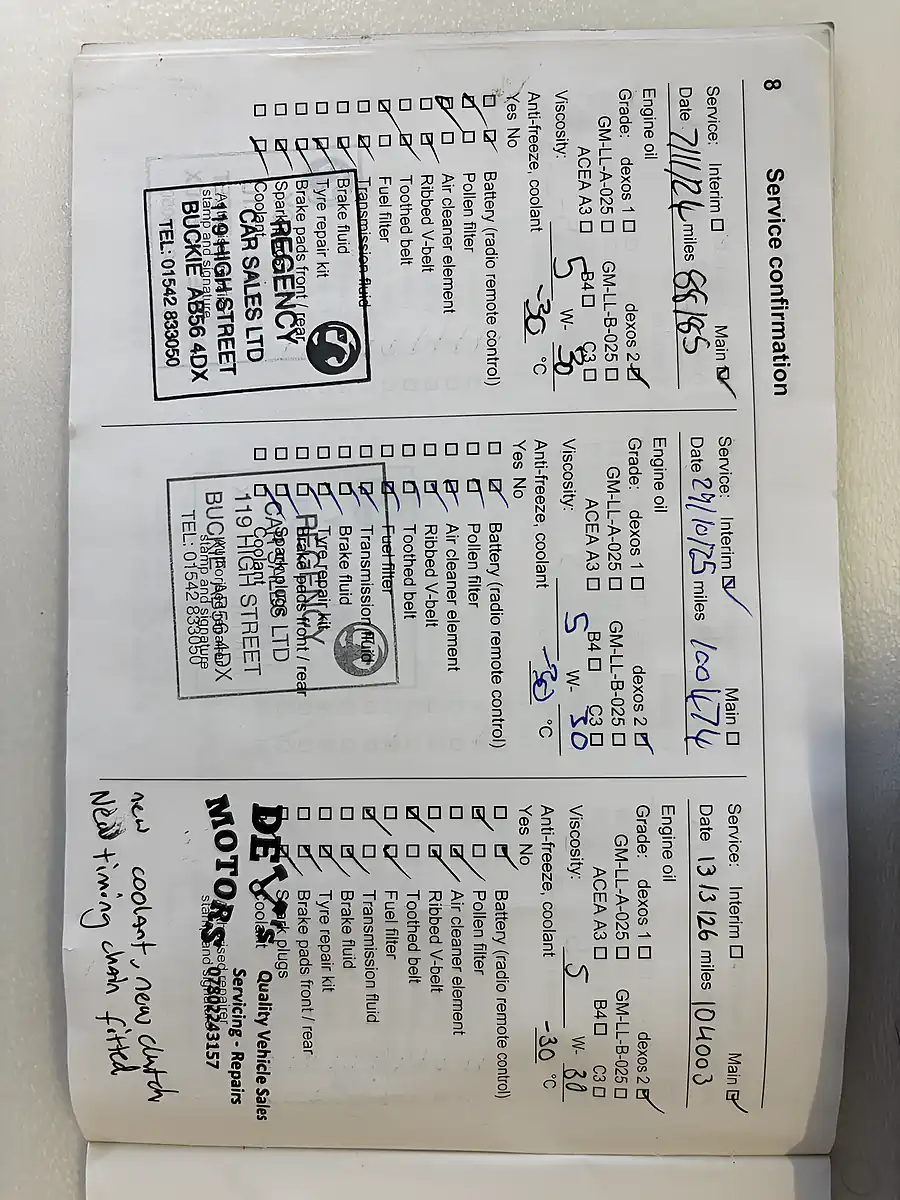 8
Service confirmation
Service: Interim ☐ Main ☑
Date 7/11/24 miles 88185
Engine oil
Grade: dexos 1 ☐ dexos 2 ☑
GM-LL-A-025 ☐ GM-LL-B-025 ☐
ACEA A3 ☐ B4 ☐ C3 ☐
Viscosity: 5 W- 30
Anti-freeze, coolant -30 °C
Yes No
Battery (radio remote control)
Pollen filter
Air cleaner element
Ribbed V-belt
Toothed belt
Fuel filter
Transmission fluid
Brake fluid
Tyre repair kit
Brake pads front / rear
Spark plugs
Coolant
stamp and signature
REGENCY
CAR SALES LTD
119 HIGH STREET
BUCKIE AB56 4DX
TEL: 01542 833050
Service: Interim ☑ Main ☐
Date 29/10/25 miles 100474
Engine oil
Grade: dexos 1 ☐ dexos 2 ☑
GM-LL-A-025 ☐ GM-LL-B-025 ☐
ACEA A3 ☐ B4 ☐ C3 ☐
Viscosity: 5 W- 30
Anti-freeze, coolant -30 °C
Yes No
Battery (radio remote control)
Pollen filter
Air cleaner element
Ribbed V-belt
Toothed belt
Fuel filter
Transmission fluid
Brake fluid
Tyre repair kit
Brake pads front / rear
Spark plugs
Coolant
stamp and signature
REGENCY
CAR SALES LTD
119 HIGH STREET
BUCKIE AB56 4DX
TEL: 01542 833050
Service: Interim ☐ Main ☑
Date 13/3/26 miles 104003
Engine oil
Grade: dexos 1 ☐ dexos 2 ☑
GM-LL-A-025 ☐ GM-LL-B-025 ☐
ACEA A3 ☐ B4 ☐ C3 ☐
Viscosity: 5 W- 30
Anti-freeze, coolant -30 °C
Yes No
Battery (radio remote control)
Pollen filter
Air cleaner element
Ribbed V-belt
Toothed belt
Fuel filter
Transmission fluid
Brake fluid
Tyre repair kit
Brake pads front / rear
Spark plugs
Coolant
MOTORS
Quality Vehicle Sales
Servicing - Repairs
07802243157
new coolant, new clutch
New timing chain fitted